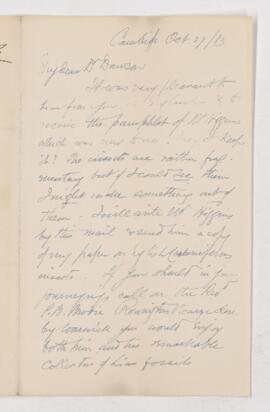 Cambridge Oct 29/83
My dear Dr Dawson
It was very pleasant to
hear from you in England & to
receive the pamphlet of Mr Higgins
which was new to me. May I keep
it? The insects are rather frag-
mentary but if I could see them
I might make something out of
them. I will write Mr Higgins
by this mail & send him a copy
of my paper on Carboniferous
insects. If you should in your
journeyings call on the Rev
P.B. Brodie Rowington Vicarage close
by Warwick you would enjoy
both him and his remarkable
collection of Lias fossils